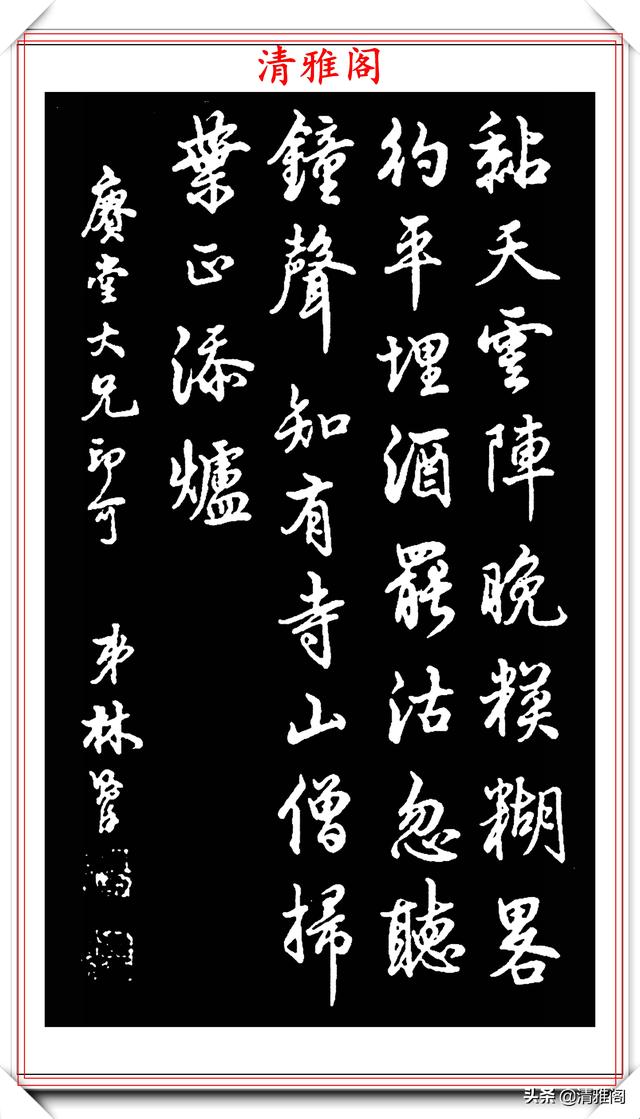 清雅阁
黏天雲陣晚糢糊畧
約平埋酒罷沽忽聽
鐘聲知有寺山僧掃
葉正添爐
賡堂大兄印可
弟林
头条 @清雅阁